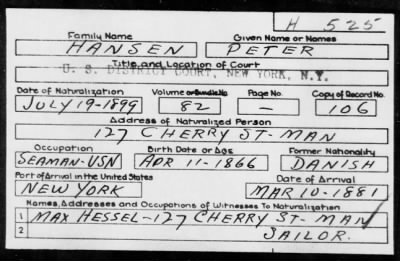 H 525
Family Name Given Name or Names
HANSEN PETER
Title and Location of Court
U. S. DISTRICT COURT, NEW YORK, N.Y.
Date of Naturalization Volume or Bundle No. Page No. Copy of Record No.
JULY 19-1899 82 — 106
Address of Naturalized Person
127 CHERRY ST- MAN
Occupation Birth Date or Age Former Nationality
SEAMAN-USN APR 11-1866 DANISH
Port of Arrival in the United States Date of Arrival
NEW YORK MAR 10-1881
Names, Addresses and Occupations of Witnesses To Naturalization
1 MAX HESSEL-127 CHERRY ST- MAN
2 SAILOR.